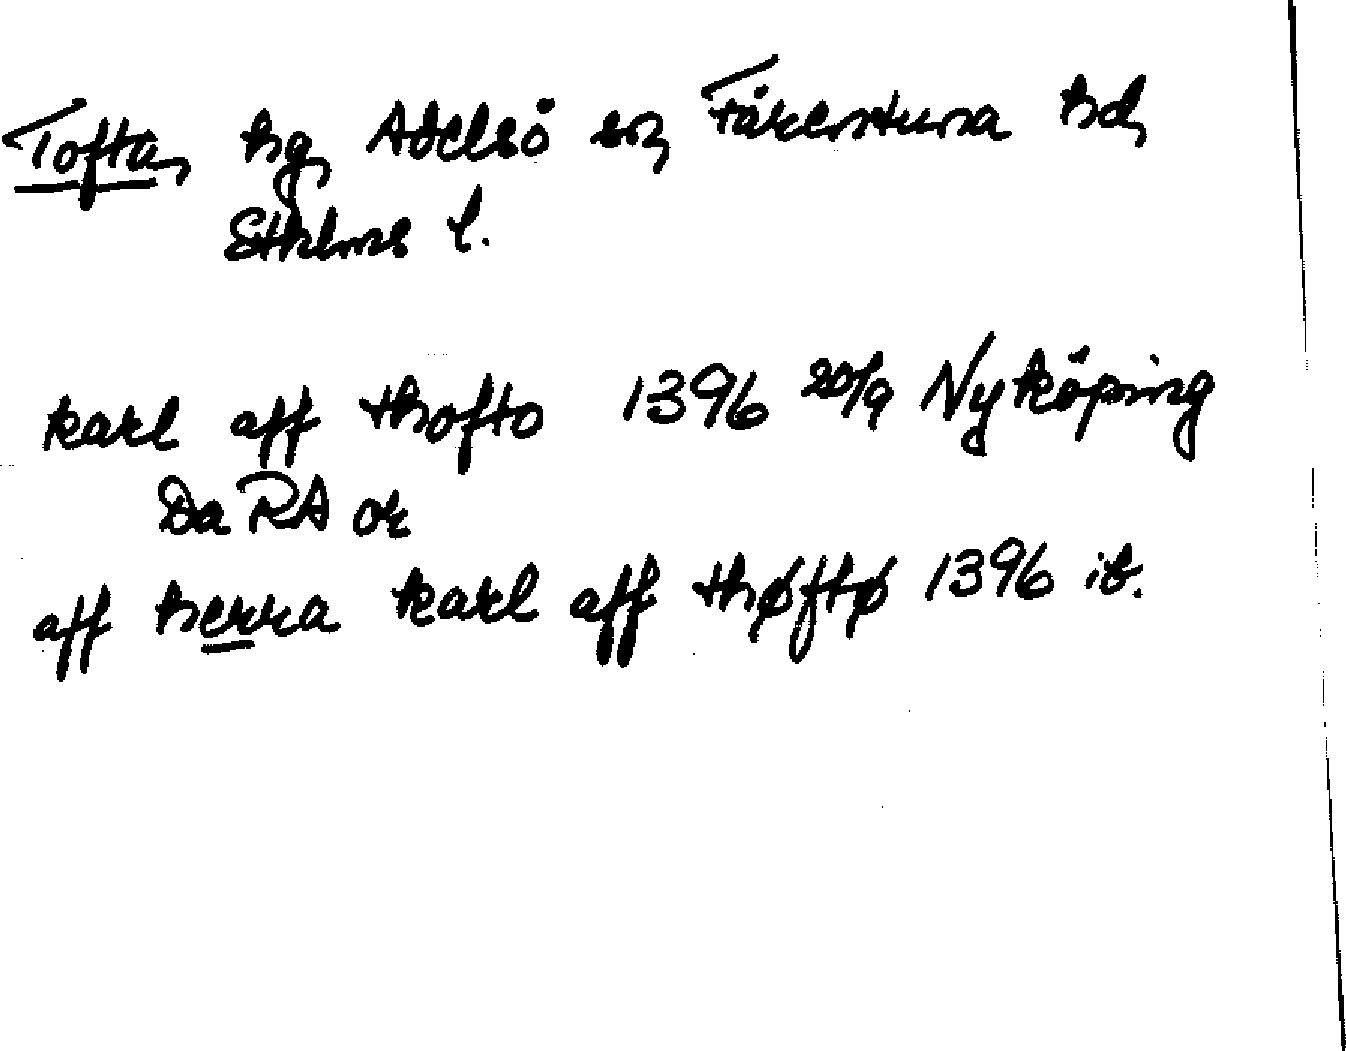 Tofta, hg, Adelsö sn, Färentuna hd,
Sthlms l.
karl aff thofto 1396 20/9 Nyköping
Da RA or
aff herra karl aff thøftø 1396 ib.